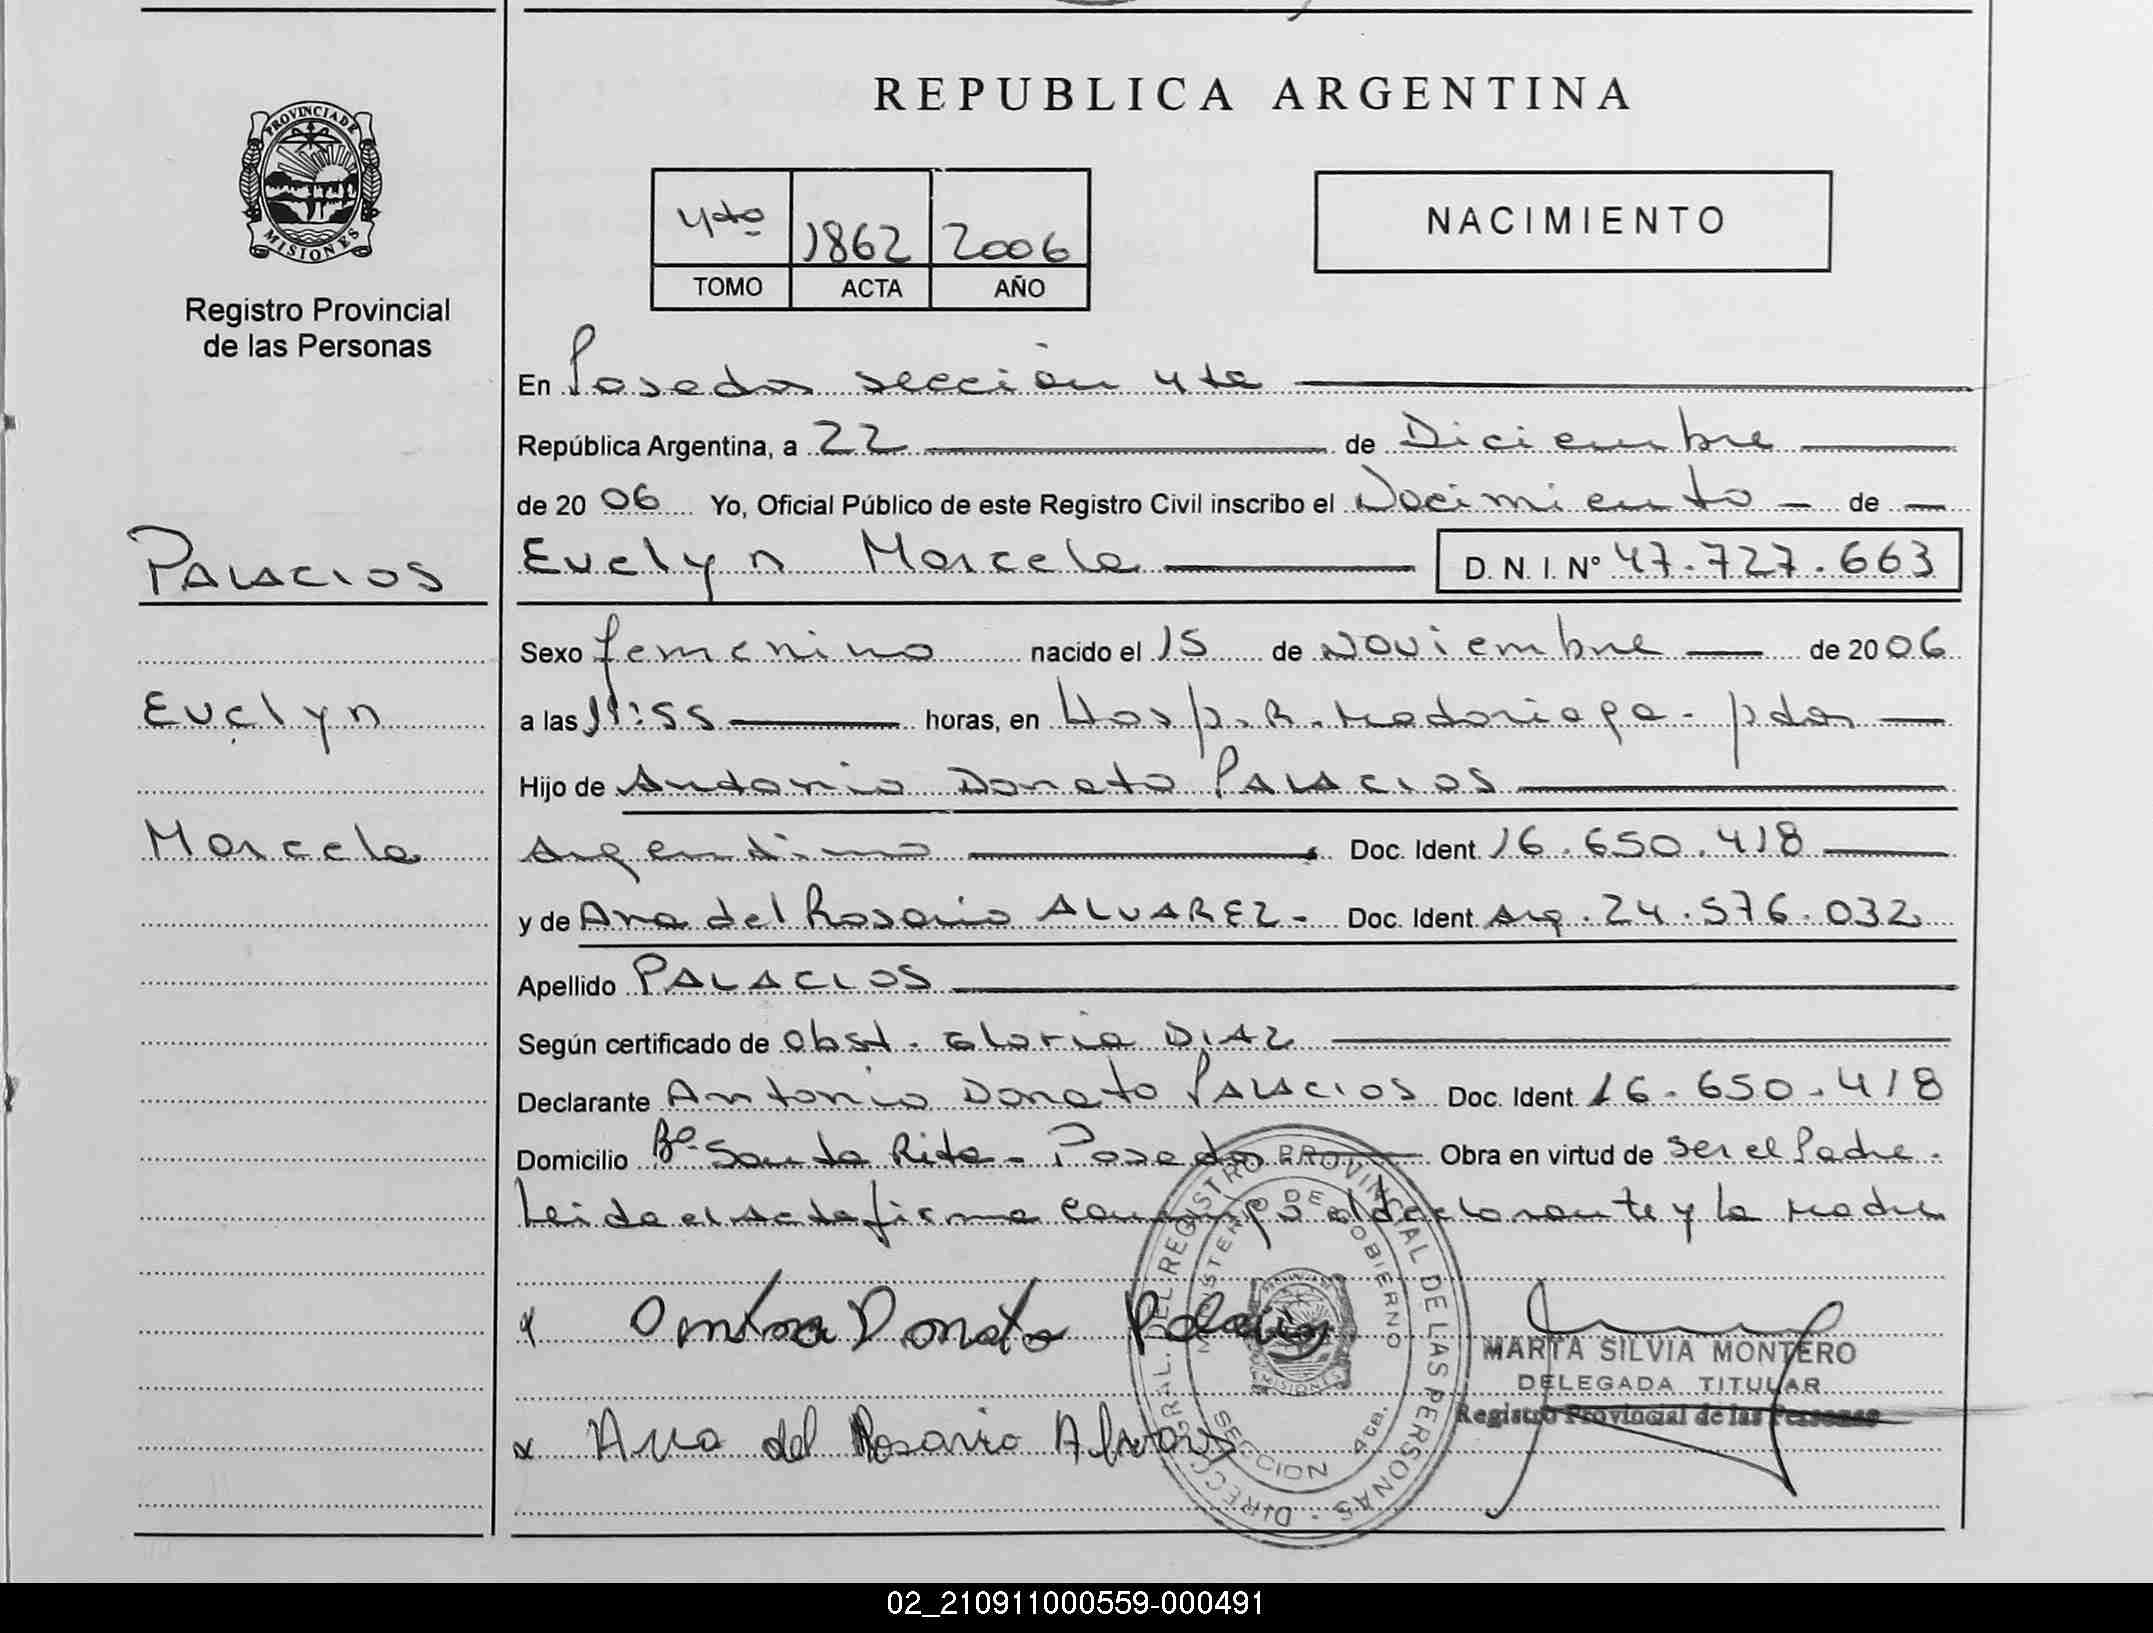 REPUBLICA ARGENTINA
PROVINCIA DE
MISIONES
Registro Provincial
de las Personas
4to 1862 2006
TOMO ACTA AÑO
NACIMIENTO
En Posadas sección 4ta
República Argentina, a 22 de Diciembre
de 20 06 Yo, Oficial Público de este Registro Civil inscribo el Nacimiento de
PALACIOS
Evelyn
Marcela
Evelyn Marcela D. N. I. Nº 47.727.663
Sexo femenino nacido el 15 de Noviembre de 20 06
a las 11:55 horas, en Hosp. R. Madariaga - pdas
Hijo de Antonio Donato PALACIOS
Argentino Doc. Ident. 16.650.418
y de Ana del Rosario ALVAREZ - Doc. Ident. Arg. 24.576.032
Apellido PALACIOS
Según certificado de Obst. Gloria DIAZ
Declarante Antonio Donato PALACIOS Doc. Ident. 16.650.418
Domicilio Bº Santa Rita - Posadas Obra en virtud de ser el Padre.
Leida el acta firma conmigo el declarante y la madre
x Donato Palacios
x Ana del Rosario
DIRECC. GRAL. DEL REGISTRO PROVINCIAL DE LAS PERSONAS
MINISTERIO DE GOBIERNO
MISIONES
SECCION 4ta.
MARTA SILVIA MONTERO
DELEGADA TITULAR
Registro Provincial de las Personas
02_210911000559-000491